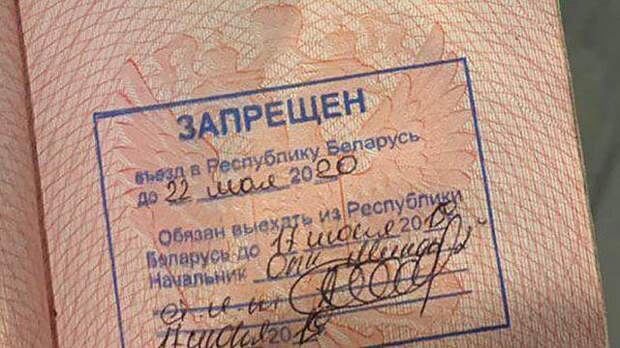 ЗАПРЕЩЕН
въезд в Республику Беларусь
до 22 мая 2020
Обязан выехать из Республики
Беларусь до 17 июня 2019
Начальник
июня 2019